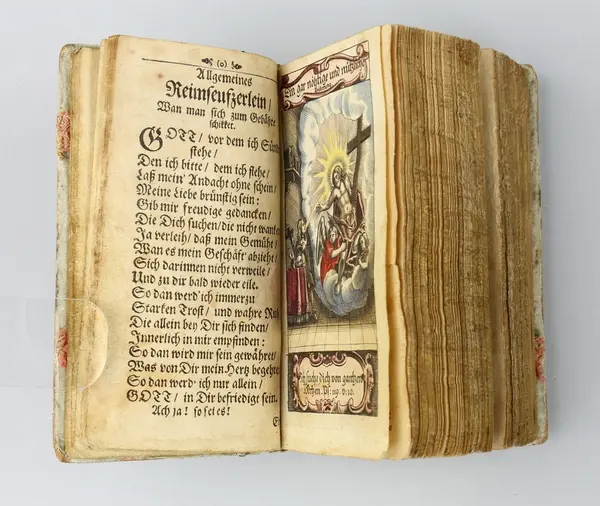 (0)
Allgemeines
Reimseufzerlein/
Wan man sich zum Gebähte
schikket.
GOTT/ vor dem ich
stehe/
Den ich bitte/ dem ich flehe/
Laß mein' Andacht ohne schein/
Meine Liebe brünstig sein:
Gib mir freudige gedancken/
Die Dich suchen/ die nicht
Ja verleih/ daß mein Gemühte/
Wan es mein Geschäft' abzieht/
Sich darinnen nicht verweile/
Und zu dir bald wieder eile.
So dan werd' ich immerzu
Starken Trost/ und wahre
Die allein bey Dir sich finden/
Innerlich in mir empfinden:
So dan wird mir sein gewähret/
Was von Dir mein Hertz begehret
So dan werd' ich nur allein/
GOTT/ in Dir befriedigt sein.
Ach ja! so sei es!
Ein gar nöhtige und nützliche
Ich suche dich von gantzem
Hertzen. Ps: 119. v: 10.